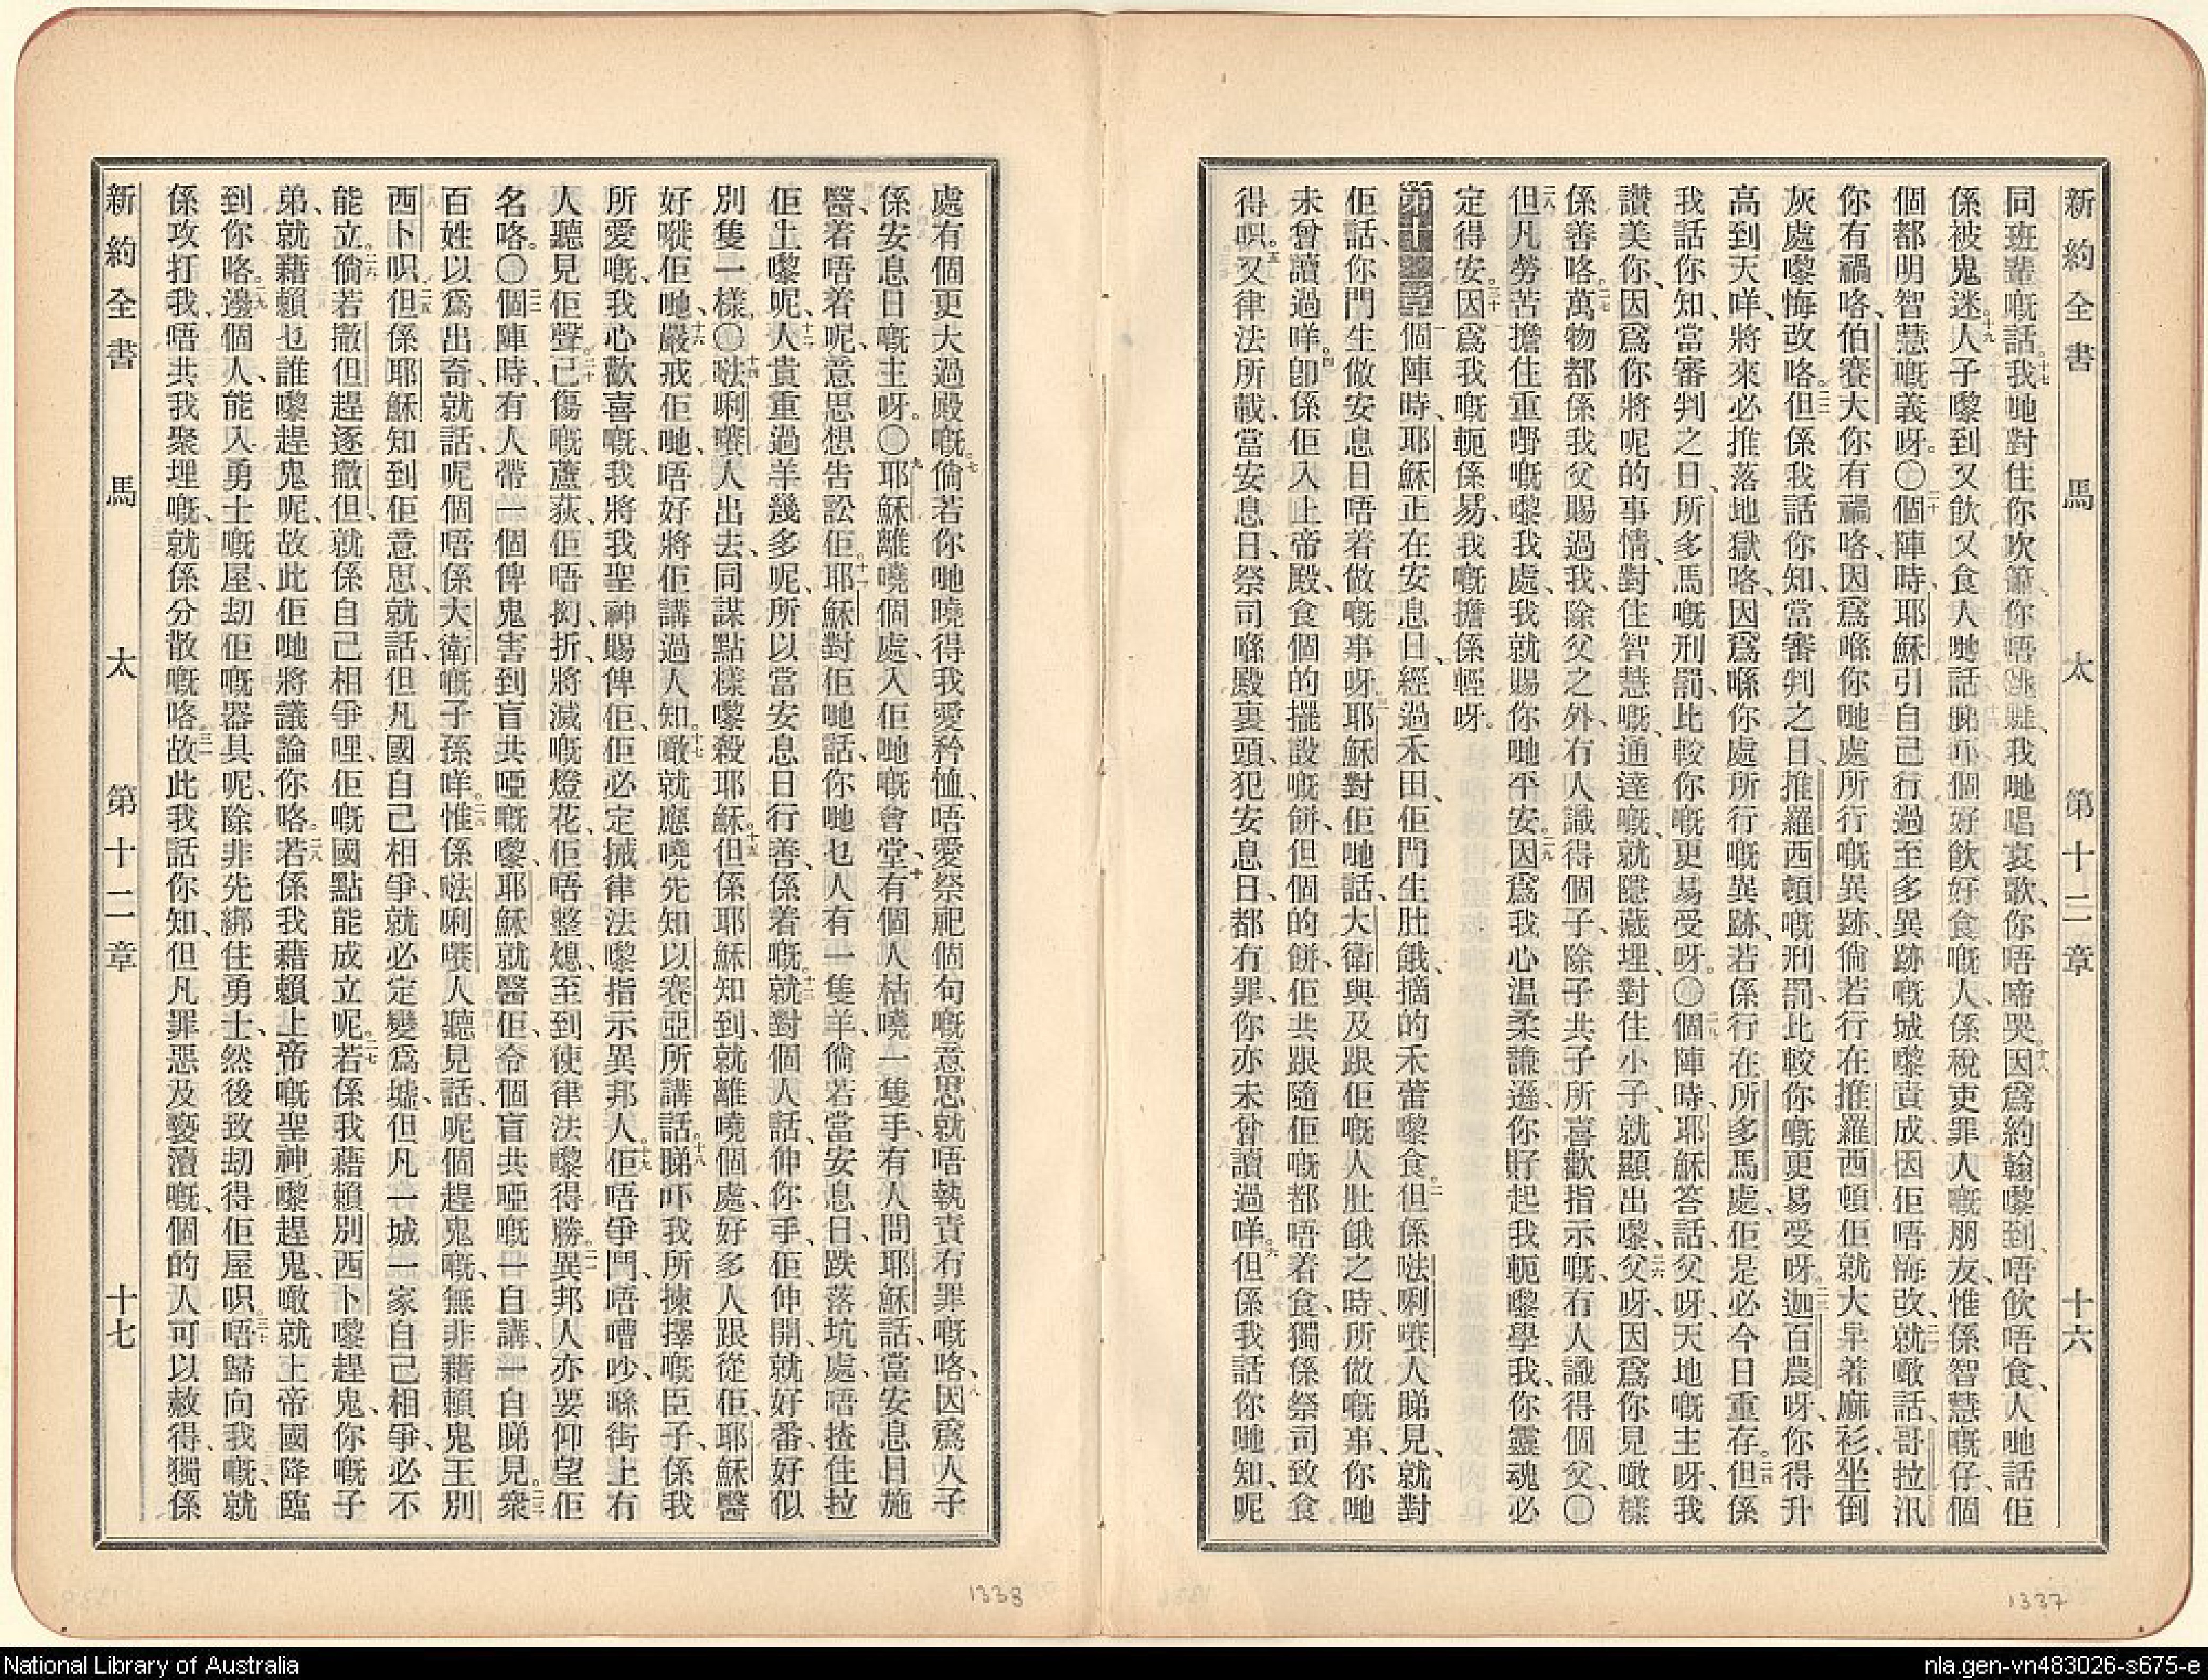 新約全書 馬太 第十二章 十六
同班輩嘅話。十七我哋對住你吹簫、你唔跳躍、我哋唱哀歌、你唔啼哭。十八因爲約翰嚟到、唔飲唔食、人哋話佢
係被鬼迷。十九人子嚟到、又飲又食、人哋話睇吓個好飲好食嘅人、係稅吏罪人嘅朋友、惟係智慧嘅仔、個
個都明智慧嘅義呀。〇二十個陣時、耶穌引自己行過至多異跡嘅城嚟責成、因佢唔悔改、二一就噉話、哥拉汛
你有禍咯、伯賽大你有禍咯、因爲喺你哋處所行嘅異跡、倘若行在推羅西頓、佢就大早着麻衫、坐倒
灰處嚟悔改咯。二二但係我話你知、當審判之日、推羅西頓嘅刑罰、比較你嘅更易受呀。二三迦百農呀、你得升
高到天咩、將來必推落地獄咯、因爲喺你處所行嘅異跡、若係行在所多馬處、佢是必今日重存。二四但係
我話你知、當審判之日、所多馬嘅刑罰、比較你嘅更易受呀。〇二五個陣時、耶穌答話、父呀、天地嘅主呀、我
讚美你、因爲你將呢的事情、對住智慧嘅、通達嘅、就隱藏埋、對住小子、就顯出嚟、二六父呀、因爲你見噉樣
係善咯。二七萬物都係我父賜過我、除父之外、冇人識得個子、除子共子所喜歡指示嘅、冇人識得個父、〇
二八但凡勞苦擔住重嘢嘅、嚟我處、我就賜你哋平安。二九因爲我心温柔謙遜、你好起我軛嚟學我、你靈魂必
定得安。三十因爲我嘅軛係易、我嘅擔係輕呀。
第十二章一個陣時、耶穌正在安息日、經過禾田、佢門生肚餓、摘的禾蕾嚟食。二但係𠵽唎㘔人睇見、就對
佢話、你門生做安息日唔着做嘅事呀。三耶穌對佢哋話、大衛與及跟佢嘅人肚餓之時、所做嘅事、你哋
未曾讀過咩。四卽係佢入上帝殿、食個的擺設嘅餅、但個的餅、佢共跟隨佢嘅都唔着食、獨係祭司致食
得呮。五又律法所載、當安息日、祭司喺殿裏頭、犯安息日、都冇罪、你亦未曾讀過咩。六但係我話你哋知、呢
處有個更大過殿嘅。七倘若你哋曉得我愛矜恤、唔愛祭祀個句嘅意思、就唔執責冇罪嘅咯、八因爲人子
係安息日嘅主呀。〇九耶穌離嘵個處、入佢哋嘅會堂、十有個人枯嘵一隻手、有人問耶穌話、當安息日施
醫、着唔着呢、意思想告訟佢。十一耶穌對佢哋話、你哋乜人有一隻羊、倘若當安息日、跌落坑處、唔揸住拉
佢上嚟呢、十二人貴重過羊幾多呢、所以當安息日行善、係着嘅。十三就對個人話、伸你手、佢伸開、就好番、好似
別隻一樣。〇十四𠵽唎㘔人出去、同謀點樣嚟殺耶穌。十五但係耶穌知到、就離嘵個處、好多人跟從佢、耶穌醫
好嗮佢哋、十六嚴戒佢哋、唔好將佢講過人知。十七噉就應嘵先知以賽亞所講話。十八睇吓我所揀擇嘅臣子、係我
所愛嘅、我心歡喜嘅、我將我聖神賜俾佢、佢必定搣律法嚟指示異邦人。十九佢唔爭鬥、唔嘈吵、喺街上冇
人聽見佢聲。二十已傷嘅蘆荻、佢唔拗折、將滅嘅燈花、佢唔整熄、至到使律法嚟得勝。二一異邦人亦要仰望佢
名咯。〇二二個陣時、有人帶一個俾鬼害到盲共啞嘅嚟、耶穌就醫佢、令個盲共啞嘅、一自講、一自睇見。二三衆
百姓以爲出奇、就話、呢個唔係大衛嘅子孫咩。二四惟係𠵽唎㘔人聽見話、呢個趕鬼嘅、無非藉賴鬼王別
西卜呮。二五但係耶穌知到佢意思、就話、但凡國自己相爭、就必定變爲墟、但凡一城一家自己相爭、必不
能立。二六倘若撒但趕逐撒但、就係自己相爭哩、佢嘅國點能成立呢。二七若係我藉賴別西卜嚟趕鬼、你嘅子
弟、就藉賴乜誰嚟趕鬼呢、故此佢哋將議論你咯。二八若係我藉賴上帝嘅聖神嚟趕鬼、噉就上帝國降臨
到你咯。二九邊個人、能入勇士嘅屋、刧佢嘅器具呢、除非先綁住勇士、然後致刧得佢屋呮。三十唔歸向我嘅、就
係攻打我、唔共我聚埋嘅、就係分散嘅咯。三一故此我話你知、但凡罪惡及褻瀆嘅、個的人可以赦得、獨係
新約全書 馬太 第十二章 十七
1338
1337
National Library of Australia
nla.gen-vn483026-s675-e